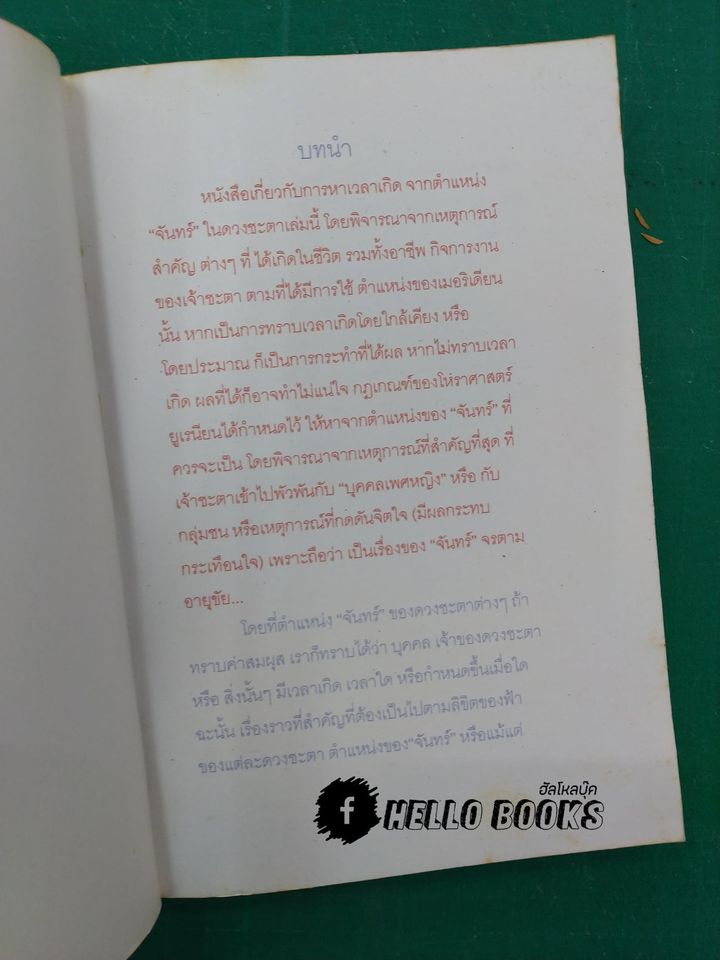 บทนำ
หนังสือเกี่ยวกับการหาเวลาเกิด จากตำแหน่ง
“จันทร์” ในดวงชะตาเล่มนี้ โดยพิจารณาจากเหตุการณ์
สำคัญ ต่างๆ ที่ ได้เกิดในชีวิต รวมทั้งอาชีพ กิจการงาน
ของเจ้าชะตา ตามที่ได้มีการใช้ ตำแหน่งของเมอริเดียน
นั้น หากเป็นการทราบเวลาเกิดโดยใกล้เคียง หรือ
โดยประมาณ ก็เป็นการกระทำที่ได้ผล หากไม่ทราบเวลา
เกิด ผลที่ได้ก็อาจทำไม่แน่ใจ กฎเกณฑ์ของโหราศาสตร์
ยูเรเนียนได้กำหนดไว้ ให้หาจากตำแหน่งของ “จันทร์” ที่
ควรจะเป็น โดยพิจารณาจากเหตุการณ์ที่สำคัญที่สุด ที่
เจ้าชะตาเข้าไปพัวพันกับ “บุคคลเพศหญิง” หรือ กับ
กลุ่มชน หรือเหตุการณ์ที่กดดันจิตใจ (มีผลกระทบ
กระเทือนใจ) เพราะถือว่า เป็นเรื่องของ “จันทร์” จรตาม
อายุขัย...
โดยที่ตำแหน่ง “จันทร์” ของดวงชะตาต่างๆ ถ้า
ทราบค่าสมผุส เราก็ทราบได้ว่า บุคคล เจ้าของดวงชะตา
หรือ สิ่งนั้นๆ มีเวลาเกิด เวลาใด หรือกำหนดขึ้นเมื่อใด
ฉะนั้น เรื่องราวที่สำคัญที่ต้องเป็นไปตามลิขิตของฟ้า
ของแต่ละดวงชะตา ตำแหน่งของ“จันทร์” หรือแม้แต่
ฮัลโหลบุ๊ค
f HELLO BOOKS